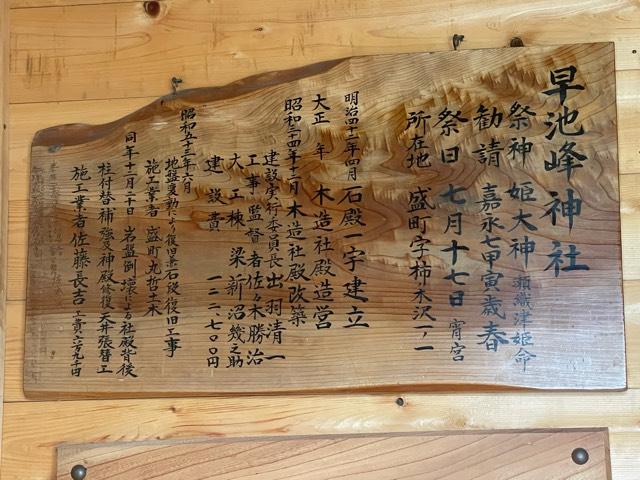 早池峰神社
祭神 姫大神 瀬織津姫命
勧請 嘉永七甲寅歳春
祭日 七月十七日 宵宮
所在地 盛町字柿ノ木沢一ノ一
明治四十二年四月 石殿一宇建立
大正 年 木造社殿造営
昭和三十四年十二月 木造社殿改築
建設実行委員長 出羽清一
工事監督者 佐々木勝治
大工棟梁 新沼幾之助
建設費 一二二、七〇〇円
昭和五十三年六月
地盤変動により復旧 石段復旧工事
施工業者 盛町丸哲土木
同年十二月二十日 岩盤倒壊による社殿背後
柱付替補強及神殿修復天井張替工
施工業者 佐藤長吉 工費 円